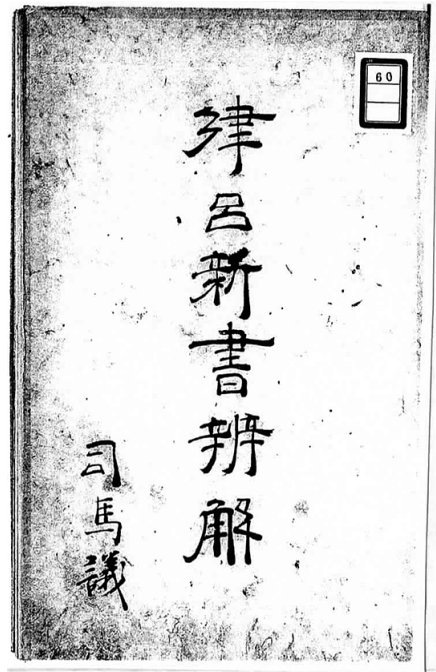 60
律呂新書辨解
司馬議